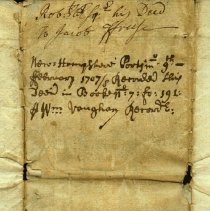 his Deed
to Jacob ffreese
New: Hampshire Portsm:o 9:
ffebruary 1707/8 Recorded this
Deed in Booke N:o 7: fo: 191:
Wm Vaughan Record:r